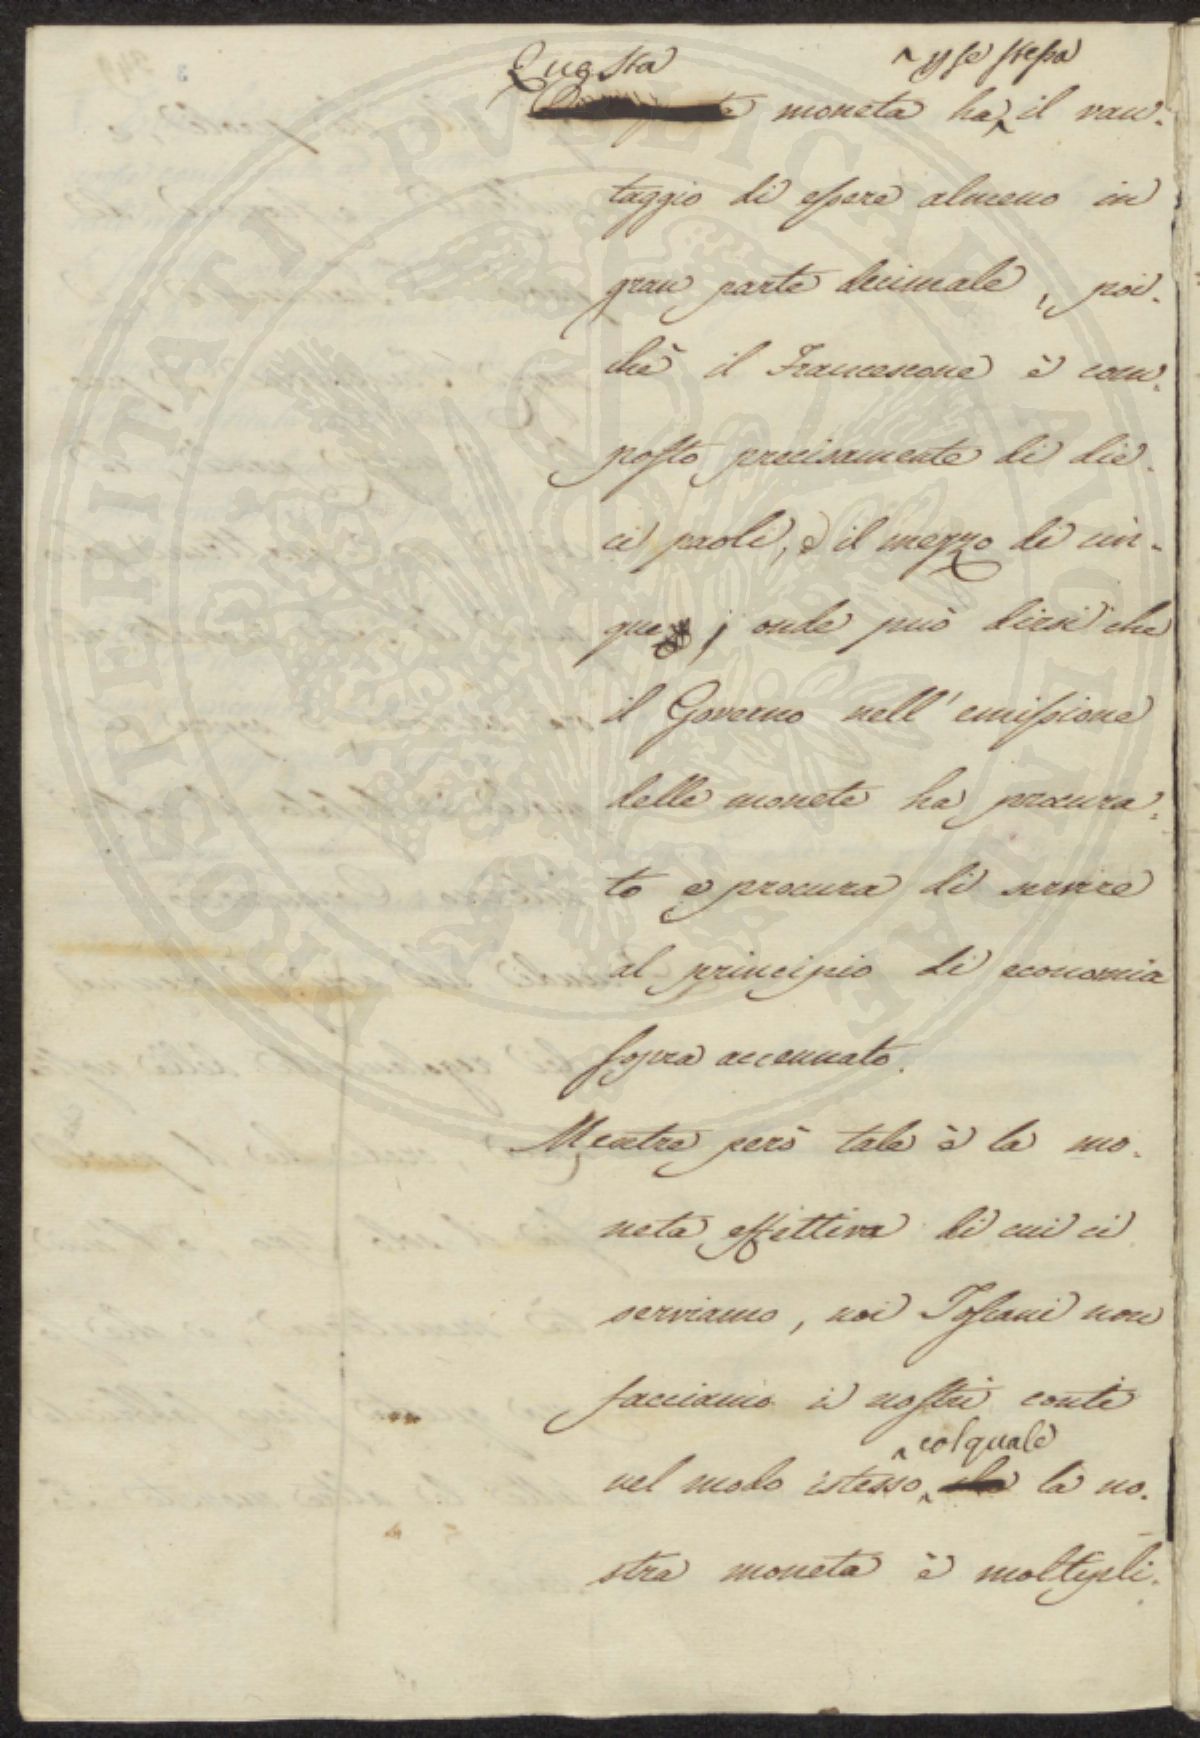 Questa ^ per se stessa
moneta ha ^ il van-
taggio di essere almeno in
gran parte decimale, poi-
chè il Francescone è com-
posto precisamente di die-
ci paoli, e il mezzo di cin-
que; onde può dirsi che
il Governo nell'emissione
delle monete ha procura-
to e procura di servire
al principio di economia
sopra accennato.
Mentre però tale è la mo-
neta effettiva di cui ci
serviamo, noi Toscani non
facciamo i nostri conti
^ col quale
nel modo istesso ^ che la no-
stra moneta è moltipli-
PROSPERITATI PVBLICAE AVGENDAE